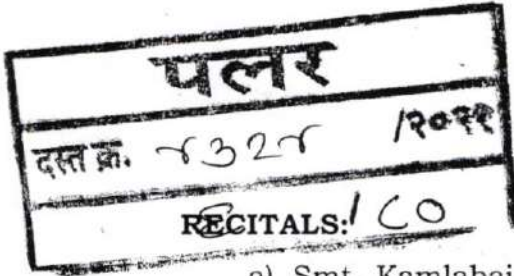 पलर
दस्त क्र. ४३२४ /२०२१
RECITALS: / ८०
a) Smt. Kamlabai